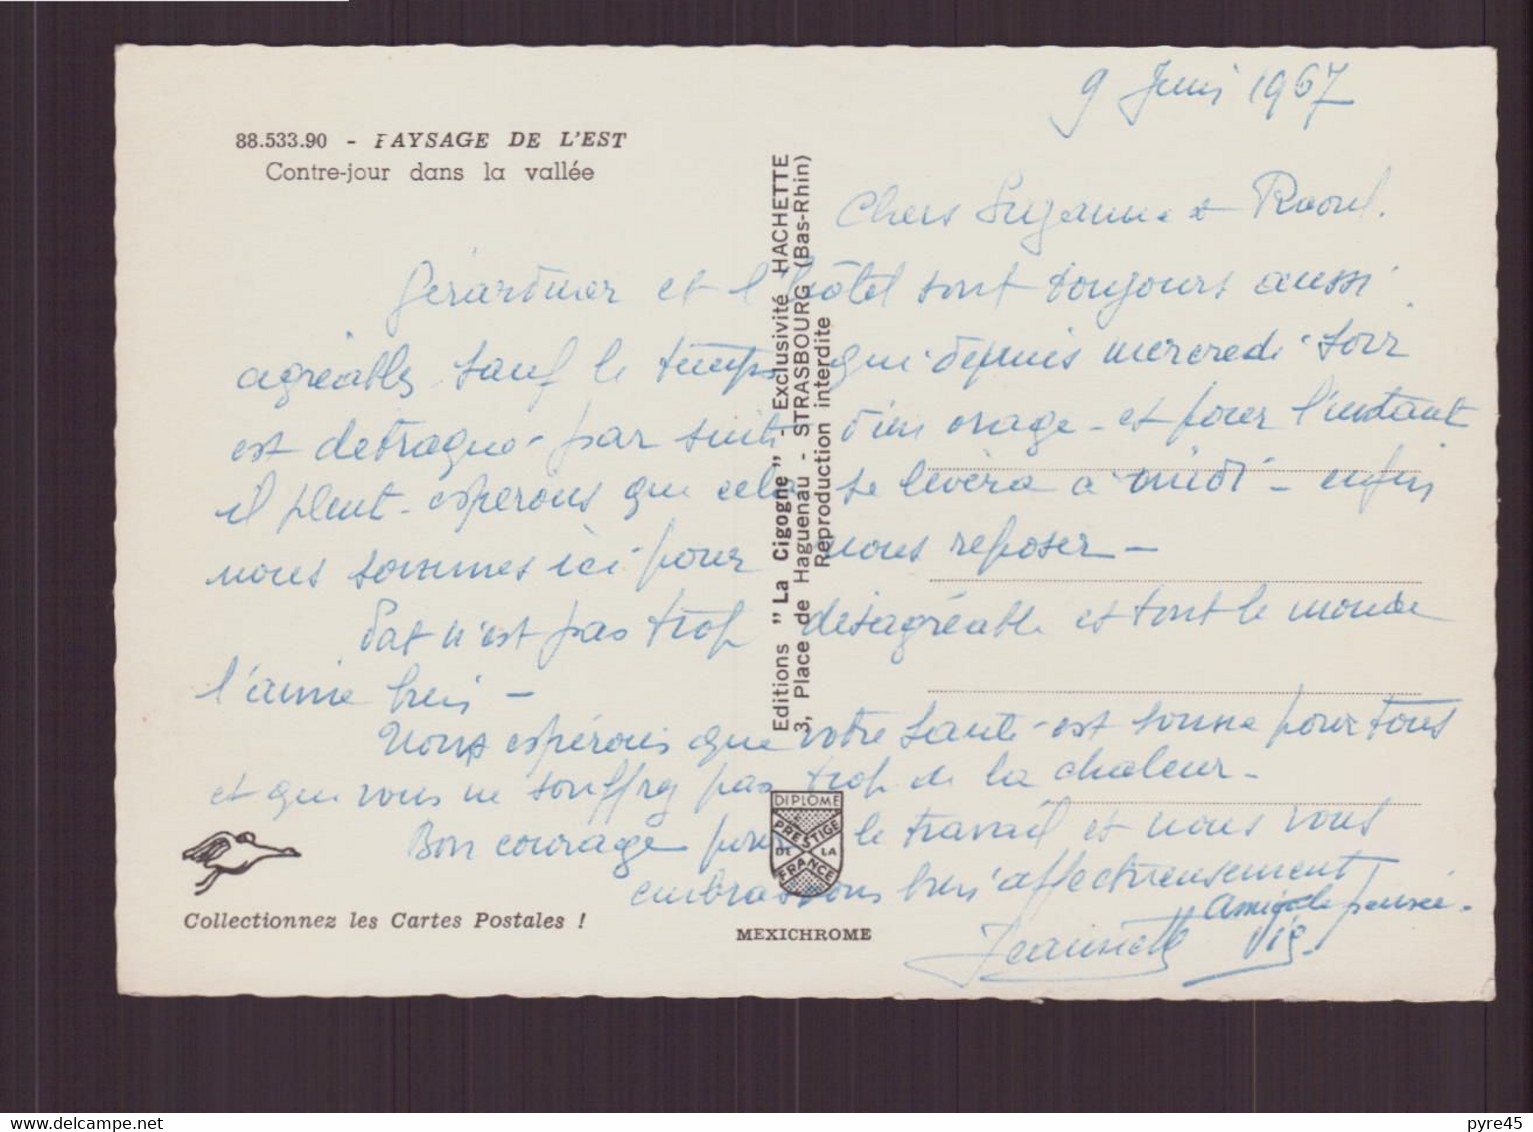 88.533.90 - PAYSAGE DE L'EST
Contre-jour dans la vallée
9 Juin 1967
Chers Suzanne et Raoul.
Gérardmer et l'hôtel sont toujours aussi
agréables sauf le temps qui depuis mercredi soir
est detraqué par suite d'un orage - et pour l'instant
il pleut - esperons que cela se lèvera à midi - enfin
nous sommes ici pour nous reposer -
Pat n'est pas trop désagréable et tout le monde
l'aime bien -
Nous espérons que votre santé est bonne pour tous
et que vous ne souffrez pas trop de la chaleur -
Bon courage pour le travail et nous vous
embrassons bien affectueusement
Amicale pensée.
Jeannette
Editions "La Cigogne" - Exclusivité HACHETTE
3, Place de Haguenau - STRASBOURG (Bas-Rhin)
Reproduction interdite
DIPLOME
PRESTIGE
DE LA
FRANCE
Collectionnez les Cartes Postales !
MEXICHROME
www.delcampe.net
pyre45